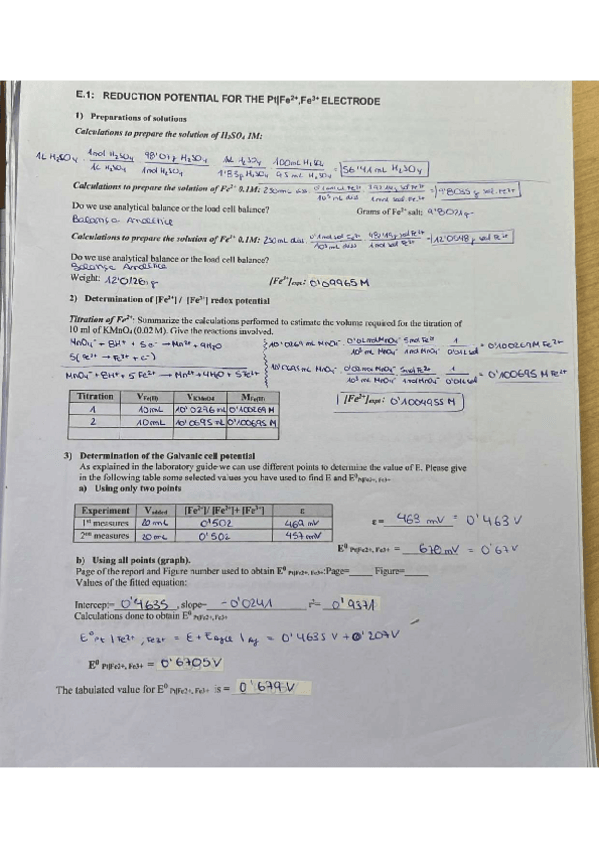 E.1: REDUCTION POTENTIAL FOR THE Pt|Fe²⁺,Fe³⁺ ELECTRODE
1) Preparations of solutions
Calculations to prepare the solution of H₂SO₄ 1M:
1L H₂SO₄ · 1mol H₂SO₄ / 1L H₂SO₄ · 98'07g H₂SO₄ / 1mol H₂SO₄ · 1L H₂SO₄ / 1'83g H₂SO₄ · 100mL H₂SO₄ / 95 mL H₂SO₄ = 56'41 mL H₂SO₄
Calculations to prepare the solution of Fe²⁺ 0.1M: 250mL dis.
Do we use analytical balance or the load cell balance? Grams of Fe²⁺ salt:
Balança Analítica
Calculations to prepare the solution of Fe³⁺ 0.1M: 250 mL diss.
Do we use analytical balance or the load cell balance?
Balança Analítica
Weight: 12'0126 g [Fe³⁺]expt: 0'09965 M
2) Determination of [Fe²⁺] / [Fe³⁺] redox potential
Titration of Fe²⁺: Summarize the calculations performed to estimate the volume required for the titration of
10 ml of KMnO₄ (0.02 M). Give the reactions involved.
MnO₄⁻ + 8H⁺ + 5e⁻ → Mn²⁺ + 4H₂O
5(Fe²⁺ → Fe³⁺ + e⁻)
MnO₄⁻ + 8H⁺ + 5Fe²⁺ → Mn²⁺ + 4H₂O + 5Fe³⁺ = 0'100695 M Fe²⁺
Titration V Fe(II) V KMnO4 M Fe(II)
1 10mL 10'0296 mL 0'100269 M
2 10mL 10'0695 mL 0'100695 M
[Fe²⁺]expt: 0'1004955 M
3) Determination of the Galvanic cell potential
As explained in the laboratory guide we can use different points to determine the value of E. Please give
in the following table some selected values you have used to find E and E⁰Pt|Fe2+, Fe3+
a) Using only two points
Experiment V added [Fe³⁺]/ [Fe²⁺]+ [Fe³⁺] ε
1ˢᵗ measures 20 mL 0'502 469 mV
2ⁿᵈ measures 20 mL 0'502 457 mV
ε = 463 mV = 0'463 V
E⁰ Pt|Fe2+, Fe3+ = 670 mV = 0'67V
b) Using all points (graph).
Page of the report and Figure number used to obtain E⁰ Pt|Fe2+, Fe3+:Page=____ Figure=____
Values of the fitted equation:
Intercept:= 0'4635 , slope= -0'0241 r²= 0'9371
Calculations done to obtain E⁰ Pt|Fe2+, Fe3+
E⁰Pt | Fe²⁺, Fe³⁺ = E + EAgCl | Ag = 0'4635 V + 0'207V
E⁰ Pt|Fe2+, Fe3+ = 0'6705 V
The tabulated value for E⁰ Pt|Fe2+, Fe3+ is = 0'679 V